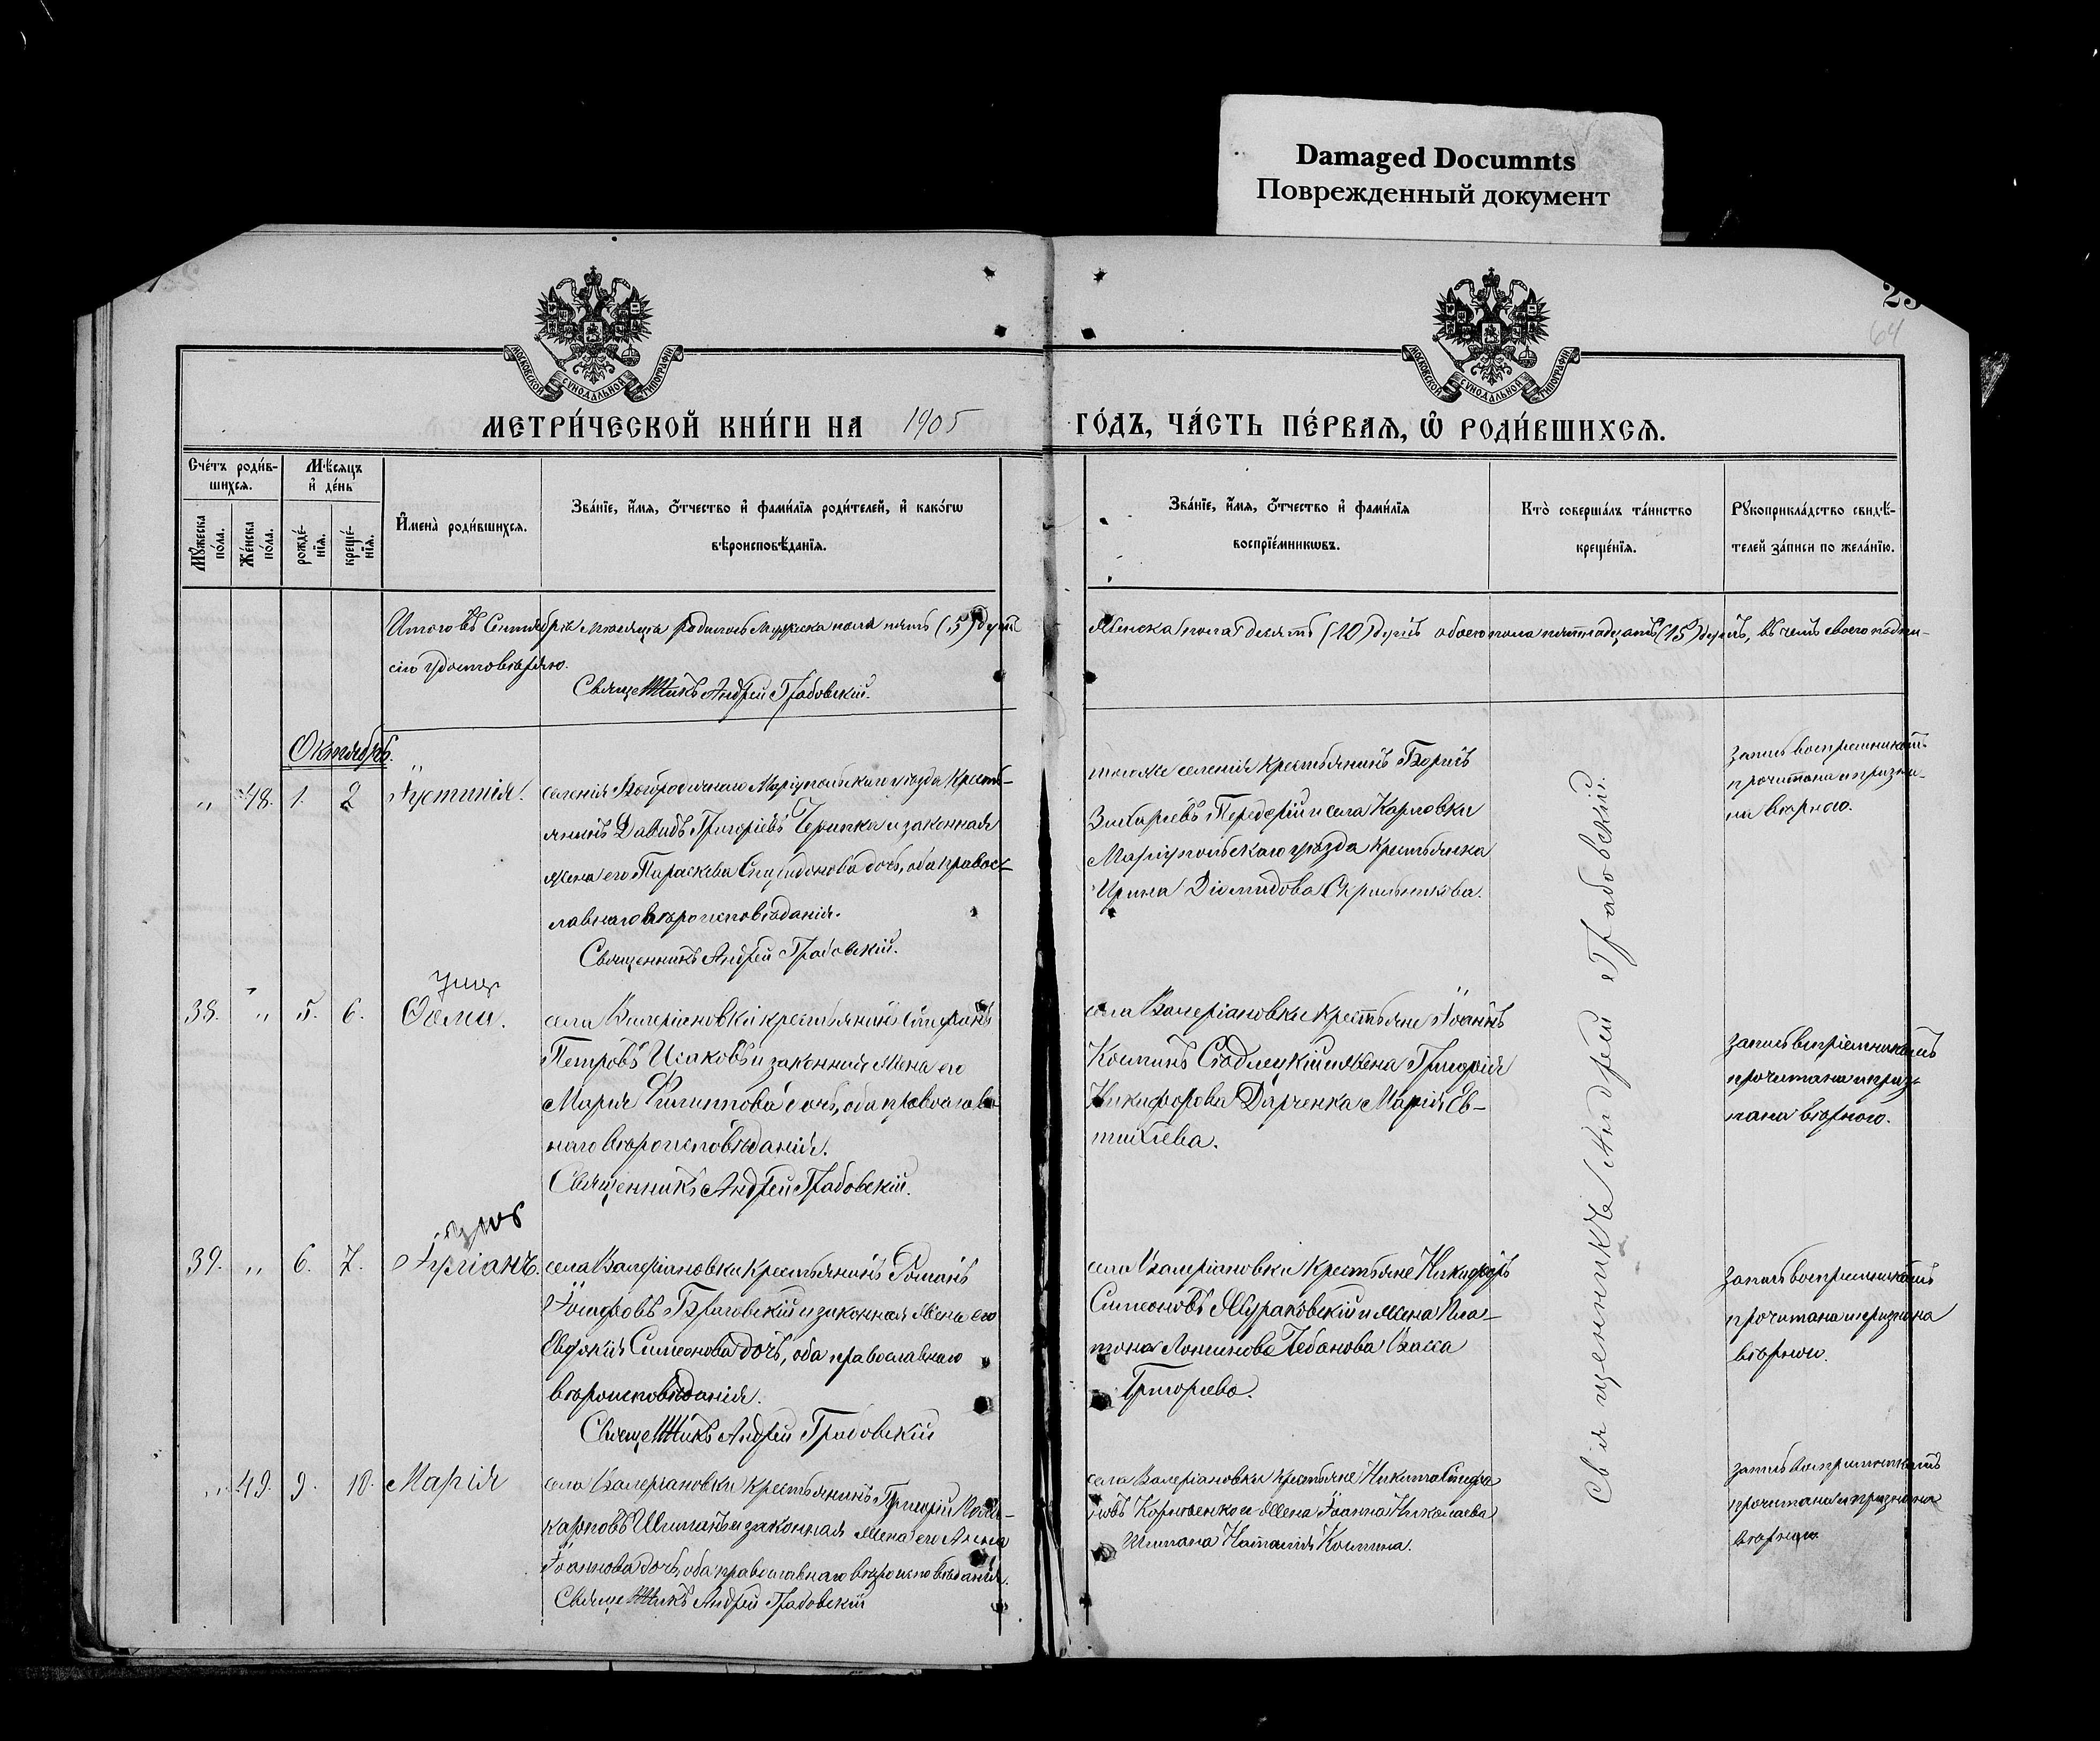 Damaged Documnts
Поврежденный документ
25
64
МОСКОВСКОЙ СѴНОДАЛЬНОЙ ТИПОГРАФІИ
МОСКОВСКОЙ СѴНОДАЛЬНОЙ ТИПОГРАФІИ
МЕТРИ́ЧЕСКОЙ КНИ́ГИ НА 1905 ГО́ДЪ, ЧА́СТЬ ПЕ́РВАѦ, Ѡ҆ РОДИ́ВШИХСѦ.
Сче́тъ роди́в-
шихсѧ.
Мꙋ́жеска по́ла.
Же́нска по́ла.
Мѣ́сѧцъ
и҆ де́нь
рожде́-
нїѧ.
креще́-
нїѧ.
И҆мена̀ роди́вшихсѧ.
Зва́нїе, и҆́мѧ, ѻ҆́тчество и҆ фами́лїѧ роди́телей, и҆ како́гѡ
вѣроисповѣ́данїѧ.
Зва́нїе, и҆́мѧ, ѻ҆́тчество и҆ фами́лїѧ
воспрїе́мникѡвъ.
Кто̀ соверша́лъ та́инство
креще́нїѧ.
Рꙋкоприкла́дство свидѣ́-
телей за́писи по жела́нїю.
Итого въ Сентябрѣ мѣсяцѣ родилось мужеска пола пять (5) душъ
Женска пола десять (10) душъ обоего пола пятнадцать (15) душъ, въ чемъ своею подпи-
сію удостовѣряю.
Священникъ Андрей Грабовскій.
Октябрь.
„ 48. 1. 2 Іустинія.
селенія Богородичнаго Маріупольскаго уѣзда кресть-
янинъ Давидъ Григоріевъ и законная
жена его Параскева Спиридонова дочь, оба правос-
лавнаго вѣроисповѣданія.
Священникъ Андрей Грабовскій.
того же селенія крестьянинъ
и села Карловки
Маріупольскаго уѣзда крестьянка
Ирина Діомидова
запись воспріемникамъ
прочитана и призна-
на вѣрною.
38. „ 5. 6. Ѳома.
села Валеріановки крестьянинъ Стефанъ
Петровъ Исаковъ и законная жена его
Марія Филиппова дочь, оба православ-
наго вѣроисповѣданія.
Священникъ Андрей Грабовскій.
села Валеріановки крестьяне Іоаннъ
Косминъ и жена Григорія
Никифорова Марія Ев-
тихіева.
запись воспріемникамъ
прочитана и приз-
нана вѣрною.
39. „ 6. 7. Іуліанъ.
села Валеріановки крестьянинъ Романъ
Іосифовъ и законная жена его
Евдокія Симеонова дочь, оба православнаго
вѣроисповѣданія.
Священникъ Андрей Грабовскій
села Валеріановки крестьяне Никифоръ
Симеоновъ Жураковскій и жена Пла-
тона Логинова Чебанова Васса
Григорьева.
запись воспріемникамъ
прочитана и признана
вѣрною.
„ 49. 9. 10. Марія
села Валеріановки крестьянинъ Григорій Поли-
карповъ Шиманъ и законная жена его Анна
Іоаннова дочь, оба православнаго вѣроисповѣданія.
Священникъ Андрей Грабовскій
села Валеріановки крестьяне Никита Стефа
новъ Корніенко и жена Іоанна Николаева
Шимана Наталія Космина.
запись воспріемникамъ
прочитана и признана
вѣрною
Священникъ Андрей Грабовскій.